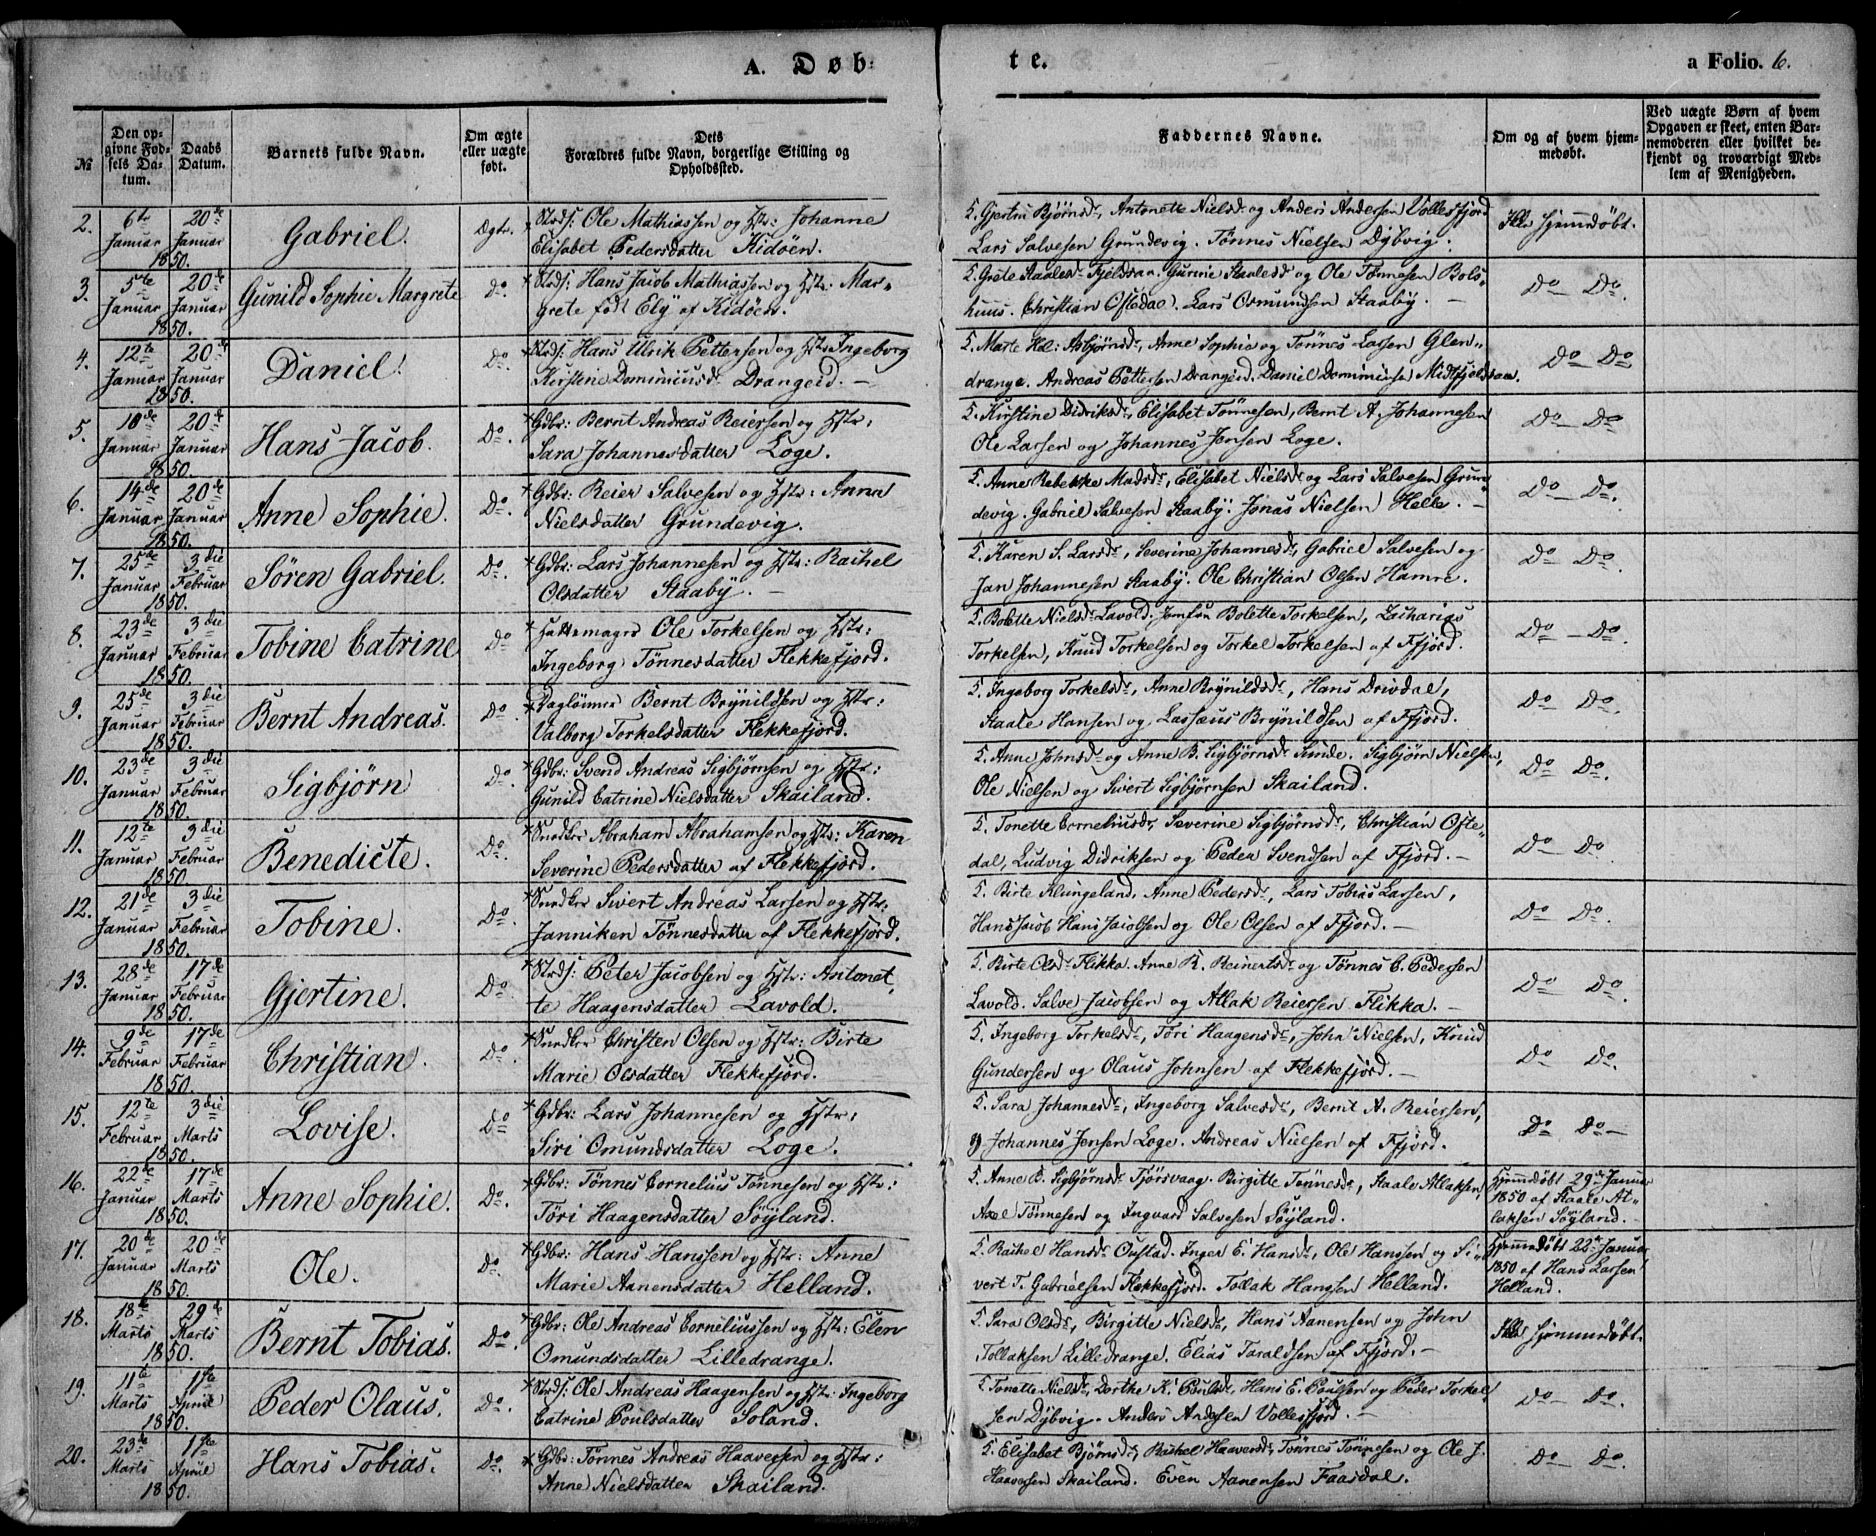 A. Døb-
te.
a Folio. 6.
№
Den opgivne Fødsels Datum.
Daabs Datum.
Barnets fulde Navn.
Om ægte eller uægte født.
Dets Forældres fulde Navn, borgerlige Stilling og Opholdssted.
Faddernes Navne.
Om og af hvem hjemmedøbt.
Ved uægte Børn af hvem Opgaven er skeet, enten Barnemoderen eller hvilket bekjendt og troværdigt Medlem af Menigheden.
2. 6te Januar 20de Januar 1850. Gabriel. Ægte. Strds: Ole Mathiassen og Hstr: Johanne
Elisabet Pedersdatter Kidöen.
5. Gjertru Bjørnsdr, Antonette Nielsdr og Anders Andersen Vollesfjord
Lars Salvesen Grundevig. Tönnes Nielsen Dybvig.
Ikke Hjemmdöbt.
3. 5te Januar 20de Januar 1850. Gunild Sophie Margrete Do. Strds: Hans Jacob Mathiassen og Hstr: Mar-
grete föd Ely af Kidöen.
5. Grete Staalesdr Fjeldsaa. Gurine Staalesdr og Ole Tönnesen Bols-
huus. Christian Oftedal. Lars Osmundsen Staaby. —
Do — Do.
4. 12te Januar 20de Januar 1850. Daniel. Do. Strds: Hans Ulrik Pettersen og Hstr: Ingeborg
Kirstine Dominicusdr Drangeid. —
5. Marte Hel: Asbjørnsdr, Anne Sophie og Tönnes Larsen Glen-
drange. Andreas Pettersen Drangeid. Daniel Dominicuse Midtfjeldsaa.
Do — Do
5. 10de Januar 20de Januar 1850. Hans Jacob. Do. Gdbr: Bernt Andreas Reiersen og Hstr:
Sara Johannesdatter Loge.
5. Kirstine Didriksdr, Elisabet Tönnesen, Bernt A. Johannesen
Ole Larsen og Johannes Jensen Loge.
Do — Do
6. 14de Januar 20de Januar 1850. Anne Sophie. Do. Gdbr: Reier Salvesen og Hstr: Anna
Nielsdatter Grundevig.
5. Anne Rebekke Madsdr, Elisabet Nielsdr og Lars Salvesen Grun-
devig. Gabriel Salvesen Staaby. Jonas Nielsen Helle. —
Do — Do.
7. 25de Januar 3die Februar 1850. Sören Gabriel. Do. Gdbr: Lars Johannesen og Hstr: Rachel
Olsdatter Staaby. —
5. Karen S. Larsdr, Severine Johannesdr, Gabriel Salvesen og
Jan Johannesen Staaby. Ole Christian Olsen Hamre.
Do Do.
8. 23de Januar 3die Februar 1850. Tobine Catrine Do Hattemager Ole Torkelsen og Hstr:
Ingeborg Tönnesdatter Flekkefjord.
5. Bolette Nielsdr Lavold. Jomfru Bolette Torkelsen, Zacharias
Torkelsen, Knud Torkelsen og Torkel Torkelsen af Ffjord.
Do — Do.
9. 25de Januar 3die Februar 1850. Bernt Andreas. Do. Daglönner Bernt Brynildsen og Hstr:
Valborg Torkelsdatter Flekkefjord.
5. Ingeborg Torkelsdr, Anne Brynildsdr, Hans Drivdal,
Staale Hansen og Lassæus Brynildsen af Ffjord.
Do Do.
10. 23de Januar 3die Februar 1850. Sigbjörn Do. Gdbr: Svend Andreas Sigbjørnsen og Hstr:
Gunild Catrine Nielsdatter Skailand.
5. Anne Johnsdr og Anne B. Sigbjørnsdr Sunde. Sigbjørn Nielsen,
Ole Nielsen og Sivert Sigbjørnsen Skailand.
Do Do.
11. 12te Januar 3die Februar 1850 Benedicte. Do. Snedker Abraham Abrahamsen og Hstr: Karen
Severine Pedersdatter af Flekkefjord.
5. Tonette Corneliusdr, Severine Sigbjørnsdr, Christian Ofte-
dal, Ludvig Didriksen og Peder Svendsen af Ffjord. —
Do Do
12. 21de Januar 3die Februar 1850. Tobine. Do. Snedker Sivert Andreas Larsen og Hstr.
Janniken Tönnesdatter af Flekkefjord.
5. Birte Klungeland. Anne Pedersdr, Lars Tobias Larsen,
Hans Jacob Hans Jacobsen og Ole Olsen af Ffjord. —
Do Do.
13. 28de Januar 17de Februar 1850. Gjertine. Do. Strds: Peter Jacobsen og Hstr: Antonet
te Haagensdatter Lavold.
5. Birte Olsdr Flikka. Anne K. Reinertsdr og Tönnes C. Pedersen
Lavold. Salve Jacobsen og Atlak Reiersen Flikka. —
Do Do.
14. 9de Februar 17de Februar 1850. Christian. Do. Snedker Christen Olsen og Hstr: Birte
Marie Olsdatter Flekkefjord.
5. Ingeborg Torkelsdr, Töri Haagensdr, John Nielsen, Knud
Gundersen og Olaus Johnsen af Flekkefjord. —
Do Do.
15. 12te Februar 3die Marts 1850. Lovise. Do Gdbr: Lars Johannesen og Hstr:
Siri Omundsdatter Loge.
5. Sara Johannesdr, Ingeborg Salvesdr, Bernt A. Reiersen,
og Johannes Jensen Loge. Andreas Nielsen af Ffjord.
Do Do —
16. 22de Januar 17de Marts 1850. Anne Sophie. Do. Gdbr: Tönnes Cornelius Tönnesen og Hstr:
Töri Haagensdatter Söyland.
5. Anne B. Sigbjørnsdr Tjörsvaag. Birgitte Tönnesdr, Staale Atlaksen,
Axel Tönnesen og Ingvard Salvesen Söyland.
Hjemmdöbt 29de Januar
1850 af Staale At-
laksen Söyland. —
17. 20de Januar 20de Marts 1850. Ole. Do. Gdbr: Hans Hanssen og Hstr: Anne
Marie Aanensdatter Helland.
5. Rachel Hansdr Oustad. Inger E. Hansdr, Ole Hanssen og Si-
vert T. Gabrielsen Flekkefjord. Tollak Hanssen Helland.
Hjemmdöbt 22de Januar
1850 af Hans Larsen
Helland.
18. 18de Marts 29de Marts 1850. Bernt Tobias. Do. Gdbr: Ole Andreas Corneliussen og Hstr: Elen
Omundsdatter Lilledrange.
5. Sara Olsdr, Birgitte Nielsdr, Hans Aanensen og John
Tollaksen Lilledrange. Elias Taraldsen af Ffjord. —
Ikke Hjemmdöbt.
19. 11te Marts 1ste April 1850. Peder Olaus. Do. Strds: Ole Andreas Haagensen og Hstr: Ingeborg
Catrine Poulsdatter Soland.
5. Tonette Nielsdr, Dorthe K. Poulsdr, Hans E. Poulsen og Peder Torkel
sen Dybvig. Anders Andesen Vollesfjord. —
Do — Do.
20. 23de Marts 1ste April 1850. Hans Tobias. Do. Gdbr: Tönnes Andreas Haavesen og Hstr:
Anne Nielsdatter Skailand.
5. Elisabet Bjørnsdr, Rachel Haavesdr, Tönnes Tönnesen og Ole J.
Haavesen Skailand. Even Aanensen Faasdal.
Do — Do.